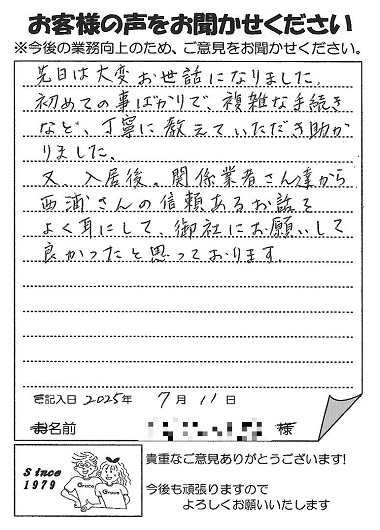 お客様の声をお聞かせください
※今後の業務向上のため、ご意見をお聞かせください。
先日は大変お世話になりました。
初めての事ばかりで、複雑な手続き
など、丁寧に教えていただき助か
りました。
又、入居後。関係業者さん達から
西浦さんの信頼あるお話を
よく耳にして、御社にお願いして
良かったと思っております
ご記入日 2025年 7月 11日
お名前 様
Since
1979
Grace
Grace
貴重なご意見ありがとうございます!
今後も頑張りますので
よろしくお願いいたします